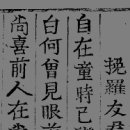 挽羅友君
自在童時已
白何曾見眼前
尚喜前人在